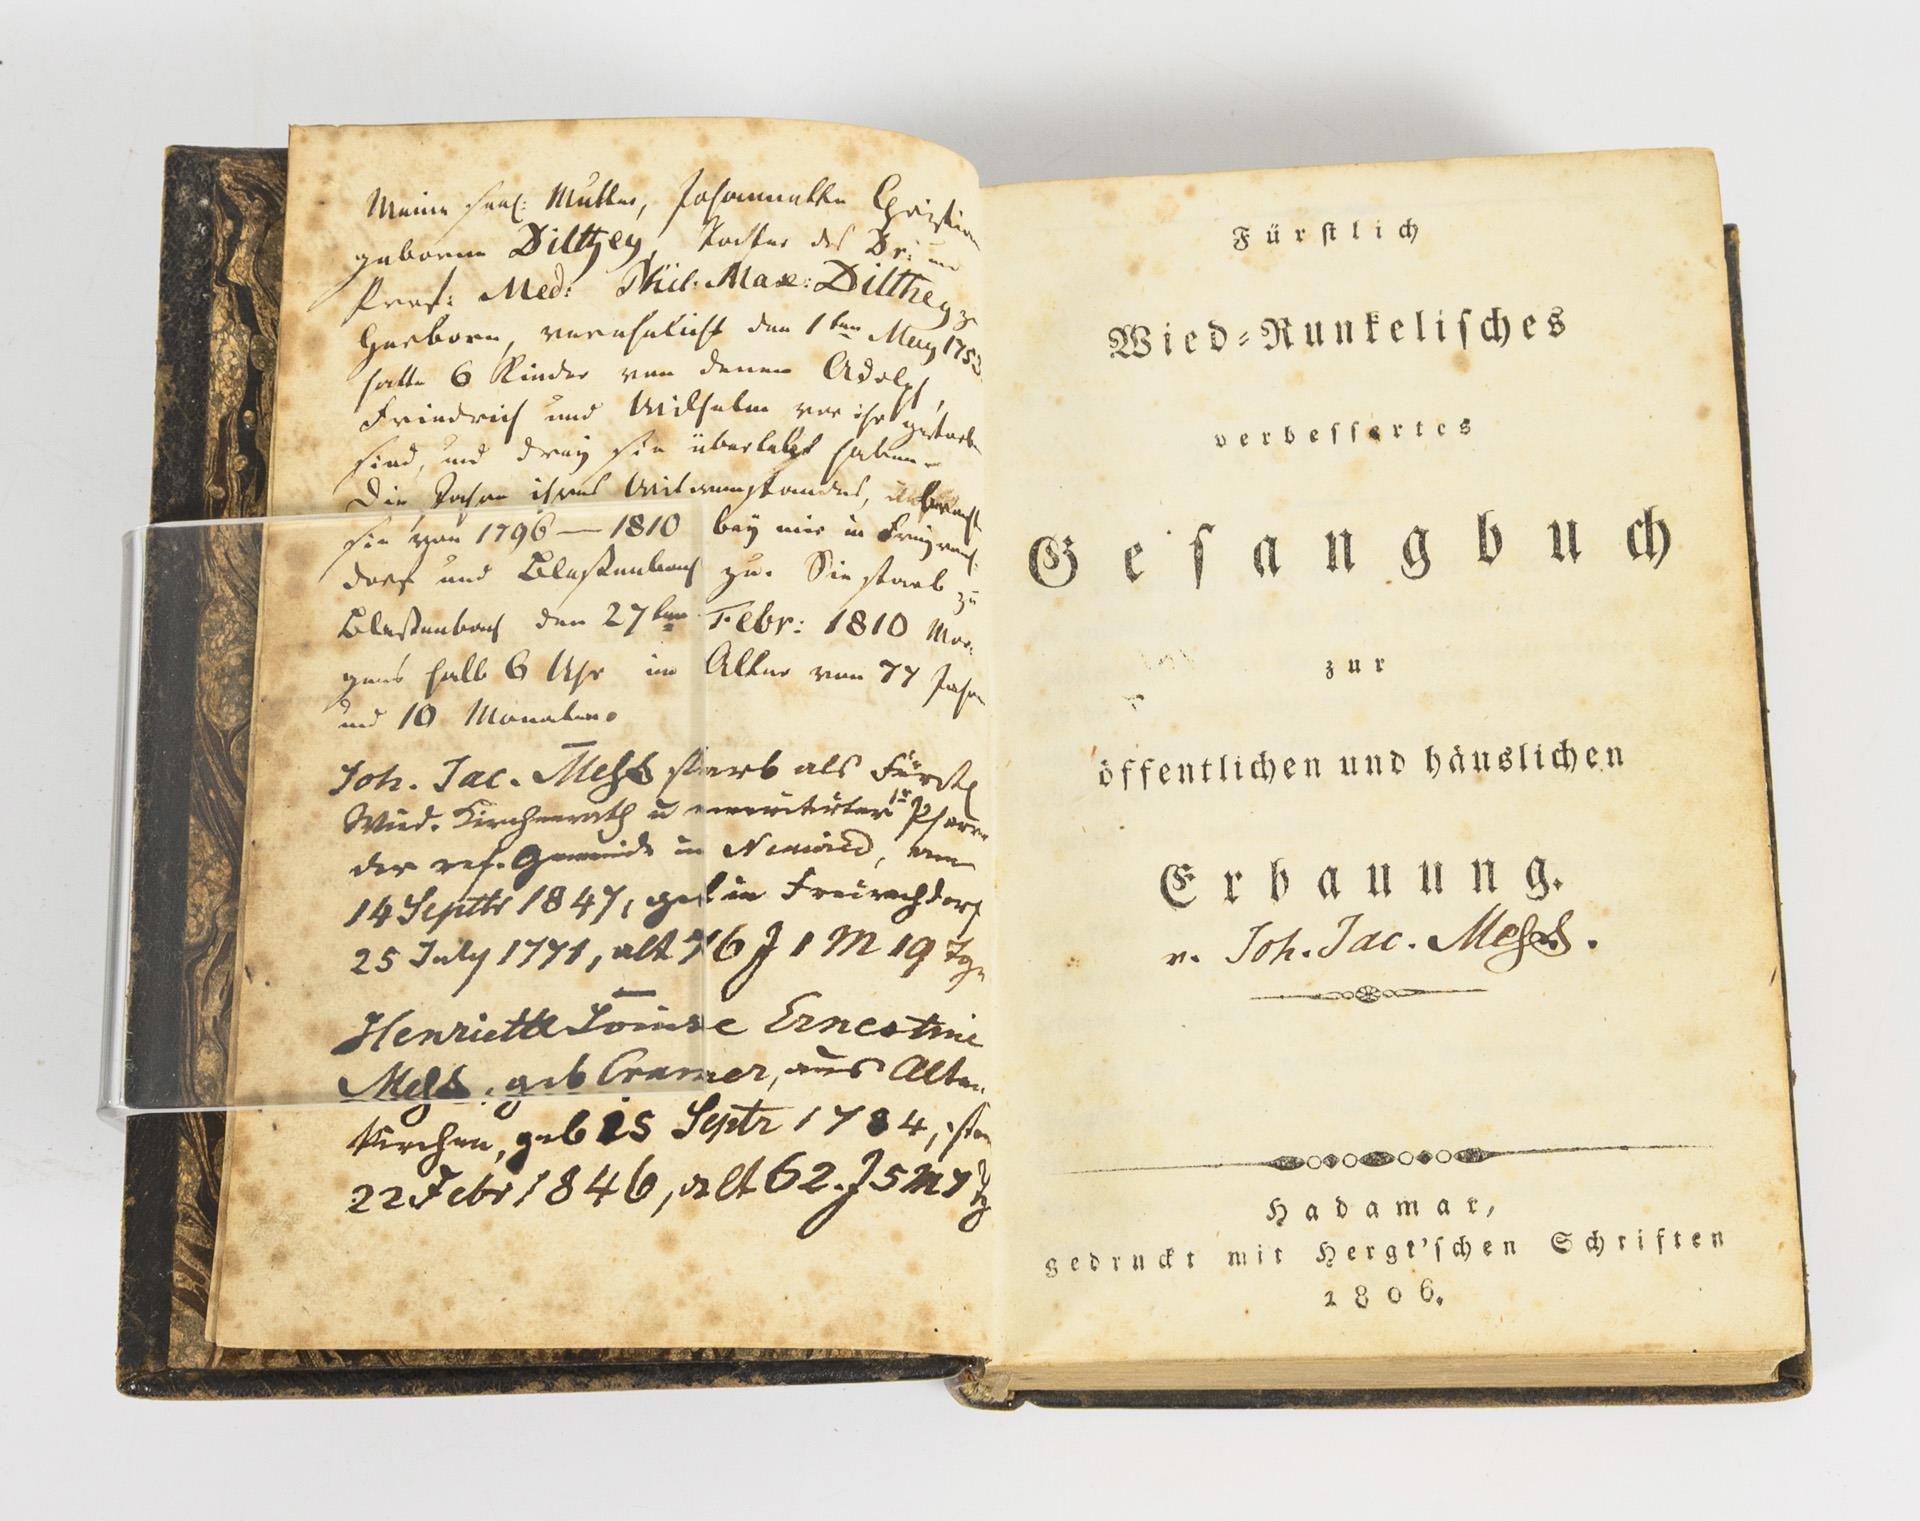 Meine seel: Mutter, Johannette Christian
geborne Dilthey, Tochter des Dr: un
Prof: Med: Phil: Max: Dilthey z
Herborn, verehelicht den 1ten May 175
hatte 6 Kinder von denen Adolph,
Friedrich und Wilhelm vor ihr gestorb
sind, und drey sie überlebt haben.
Die Jahre ihres Witwenstandes,
sie von 1796 — 1810 bey mir in Freyrach-
dorf und zu. Sie starb zu
den 27ten Febr: 1810 Mor-
gens halb 6 Uhr im Alter von 77 Jahr
und 10 Monaten.
Joh. Jac. Mess starb als Fürstl
Wied. Kirchenrath u emeritirter 1r Pfarr
der ref. Gemeinde in Neuwied, am
14 Septbr 1847, geb in Freirachdorf
25 July 1771, alt 76 J 1 M 19 Tge
Henriette Louise Ernestine
Mess, geb Cramer, aus Alten
kirchen, geb 15 Septr 1784,
22 Febr 1846, alt 62 J 5 M 7 Tg
Fürstlich
Wied-Runkelisches
verbessertes
Gesangbuch
zur
öffentlichen und häuslichen
Erbauung.
v. Joh. Jac. Mess.
Hadamar,
gedruckt mit Hergt'schen Schriften
1806.